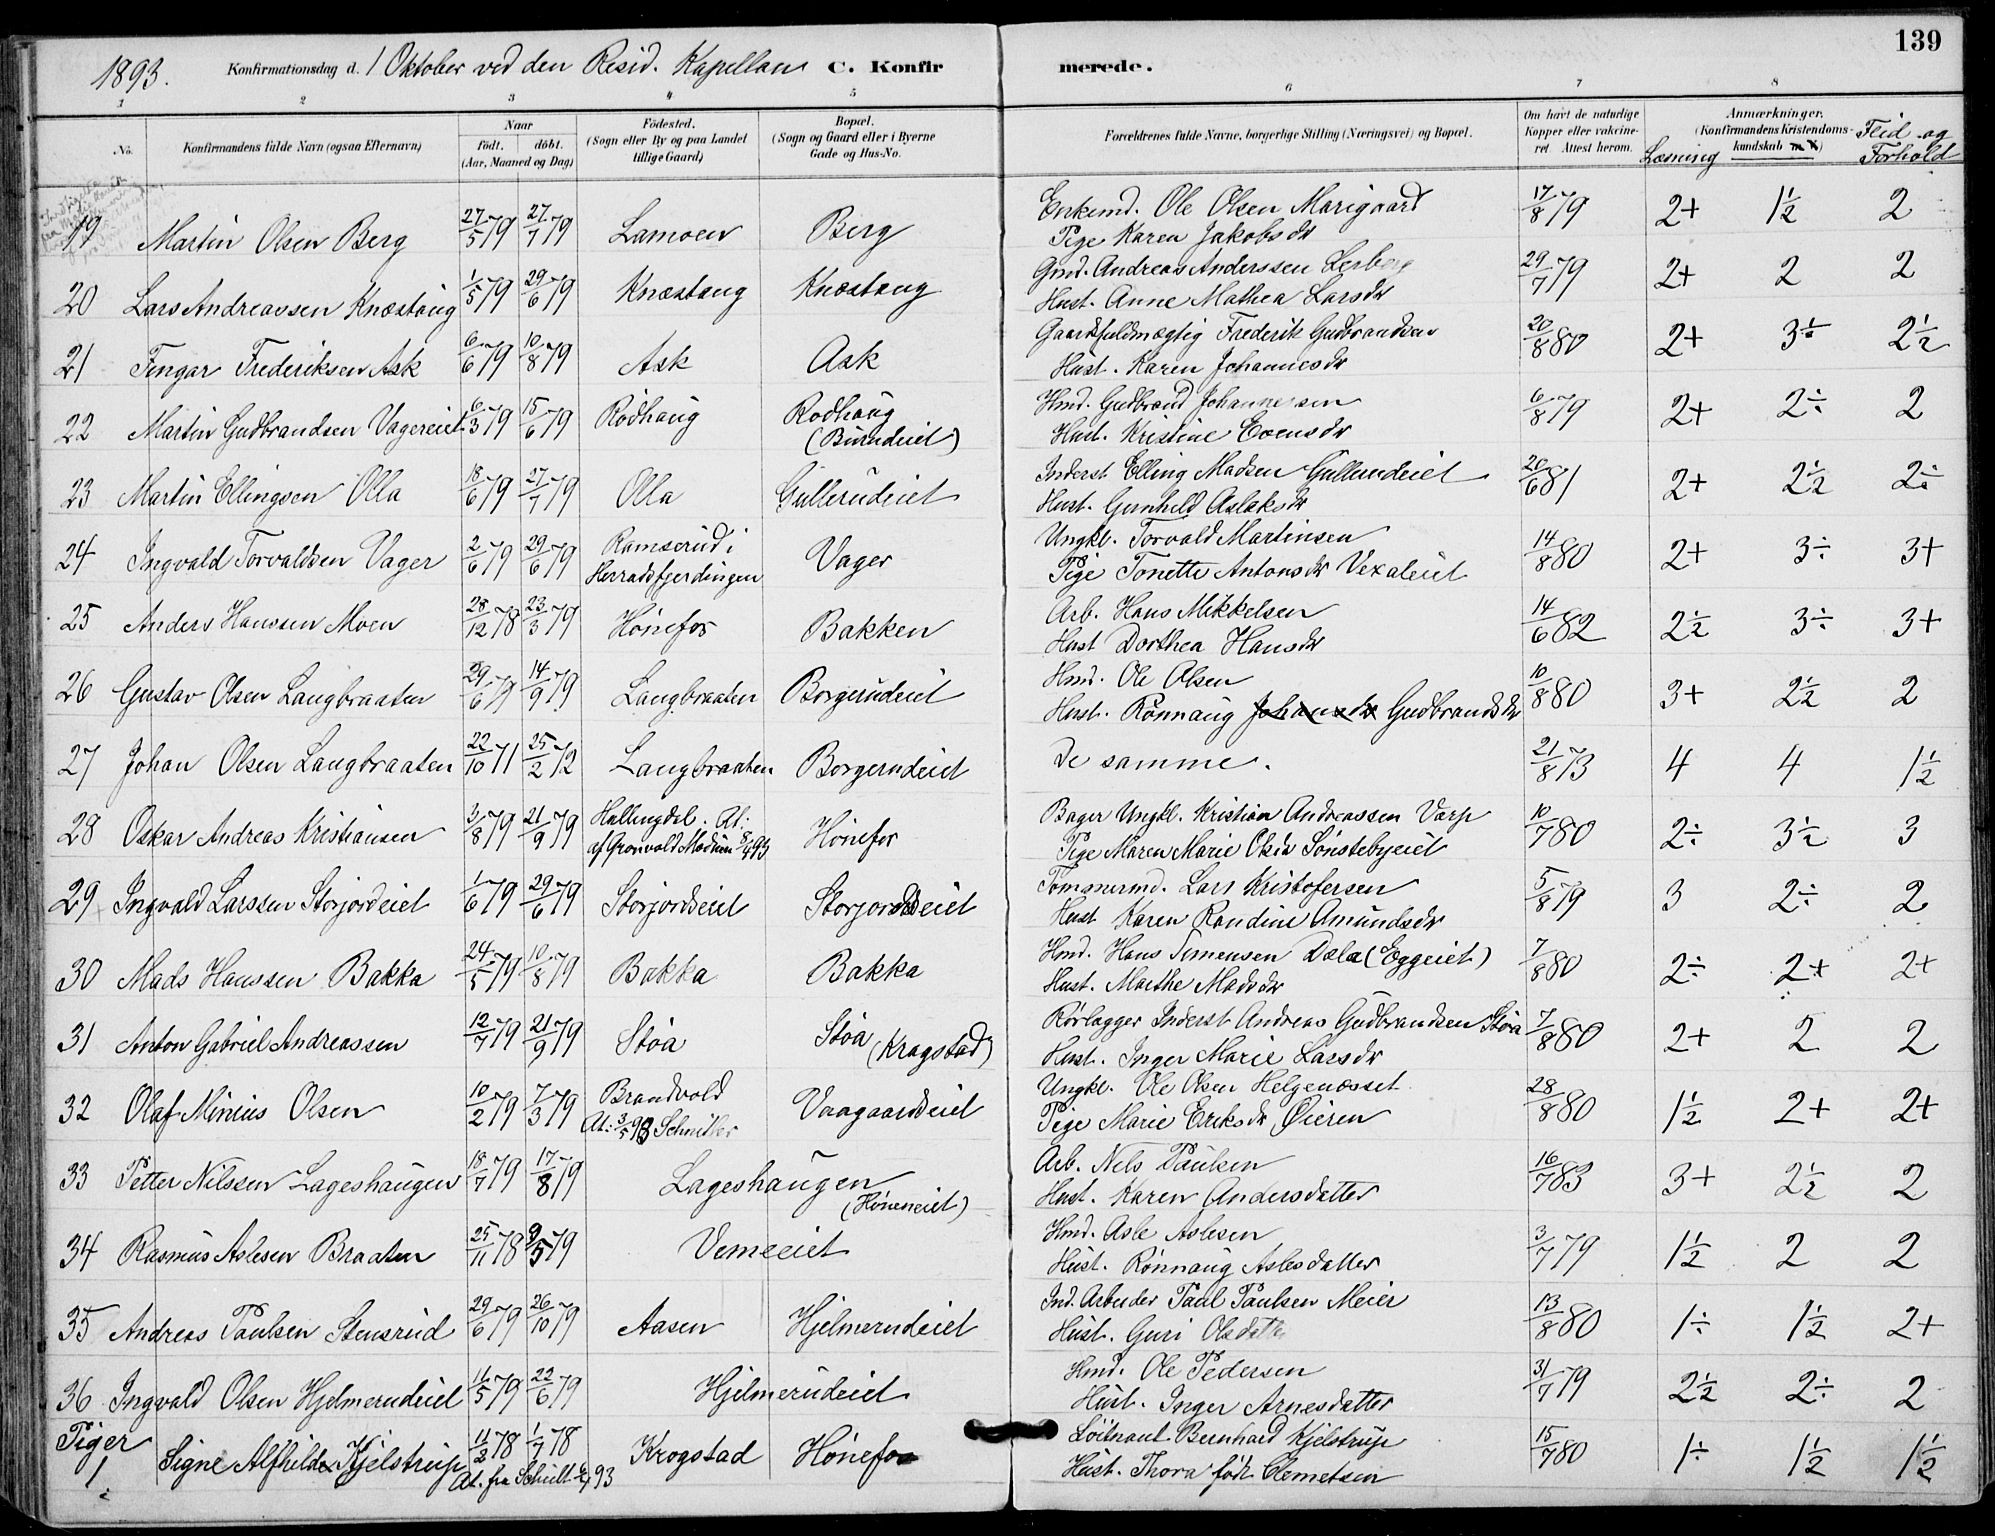 139
1893. Konfirmationsdag d. 1 Oktober ved den Resid. Kapellan C. Konfirmerede.
1 2 3 4 5 6 7 8
No. Konfirmandens fulde Navn (ogsaa Efternavn) Naar født. døbt. (Aar, Maaned og Dag) Fødested. (Sogn eller By og paa Landet tillige Gaard) Bopæl. (Sogn og Gaard eller i Byerne Gade og Hus-No. Forældrenes fulde Navne, borgerlige Stilling (Næringsvei) og Bopæl. Om havt de naturlige Kopper eller vakcineret. Attest herom. Anmærkninger. (Konfirmandens Kristendomskundskab m. V.) Læsning Flid og Forhold
19 Martin Olsen Berg 27/5 79 27/7 79 Lamoen Berg Enkemd. Ole Olsen Marigaard 17/8 79 2+ 1½ 2
Pige Karen Jakobsdr
20 Lars Andreassen Knæstang 1/5 79 29/6 79 Knæstang Knæstang Gmd. Andreas Anderssen Lerberg 29/7 79 2+ 2 2
Hust. Anne Mathea Larsdr
21 Fingar Frederiksen Ask 6/6 79 10/8 79 Ask Ask Gaardsfuldmægtig Frederik Gudbrandsen 20/8 80 2+ 3½ 2½
Hust. Karen Johannesdr
22 Martin Gudbrandsen Vagereiet 6/3 79 15/6 79 Rødhaug Rødhaug Hmd. Gudbrand Johannesen 6/8 79 2+ 2÷ 2
(Burudeiet) Hust. Kristine Evensdr
23 Martin Ellingsen Olla 18/6 79 27/7 79 Olla Gullerudeiet Inderst Elling Madsen Gullerudeiet 20/6 81 2+ 2½ 2÷
Hust. Gunhild Aslaksdr
24 Ingvald Torvaldsen Vager 2/6 79 29/6 79 Ramserud i Herradsfjerdingen Vager Ungkl. Torvald Martinsen 14/8 80 2+ 3÷ 3+
Pige Tonette Antonsdr Vexaleiet
25 Anders Hanssen Moen 28/12 78 23/3 79 Hønefos Bakken Arb. Hans Mikkelsen 14/6 82 2½ 3÷ 3+
Hust Dorthea Hansdr
26 Gustav Olsen Langbraaten 29/6 79 14/9 79 Langbraaten Borgerudeiet Hmd. Ole Olsen 10/8 80 3+ 2½ 2
Hust. Rønnaug Johansdr Gudbrandsdr
27 Johan Olsen Langbraaten 22/10 71 25/2 72 Langbraaten Borgerudeiet De samme. 21/8 73 4 4 1½
28 Oskar Andreas Kristiansen 3/8 79 21/9 79 Hallingdal. At: Hønefos Bager Ungkl. Kristian Andreassen Varp 10/7 80 2÷ 3½ 3
af Grønvold Modum 8/4 93 Pige Maren Marie Olsdr Sønstebyeiet
29 Ingvald Larssen Storjordeiet 1/6 79 29/6 79 Storjordseiet Storjordseiet Tømmermd. Lars Kristofersen 5/8 79 3 2÷ 2
Hust Karen Randine Amundsdr
30 Mads Hanssen Bakka 24/5 79 10/8 79 Bakka Bakka Hmd. Hans Simensen Dæla (Eggeiet) 7/8 80 2÷ 2+ 2+
Hust. Marthe Madsdr
31 Anton Gabriel Andreassen 12/7 79 21/9 79 Støa Støa (Kragstad) Rørlægger Inderst Andreas Gudbrandsen Støa 7/8 80 2+ 2 2
Hust. Inger Marie Larsdr
32 Olaf Minius Olsen 10/2 79 7/3 79 Brandvold Vaagaardseiet Ungkl. Ole Olsen Helgenæsset 28/8 80 1½ 2+ 2+
At: 3/5 93 Schnitler Pige Marie Eriksdr Øieren
33 Petter Nilssen Lageshaugen 18/7 79 17/8 79 Lageshaugen Arb. Nels Paulsen 16/7 83 3+ 2½ 2
(Høneneiet) Hust. Karen Andersdatter
34 Rasmus Aslesen Braaten 25/11 78 9/5 79 Vemeeiet Hmd. Asle Aslesen 3/7 79 1½ 2 2
Hust. Rønnaug Aslesdatter
35 Andreas Paulsen Stensrud 29/6 79 26/10 79 Aasen Hjelmerudeiet Ind. Arbeider Paul Paulsen Meier 13/8 80 1÷ 1½ 2+
Hust. Guri Olsdatter
36 Ingvald Olsen Hjelmerudeiet 16/5 79 22/6 79 Hjelmerudeiet Hmd. Ole Pedersen 31/7 79 2½ 2÷ 2
Hust. Inger Arnesdatter
Piger
1 Signe Alfhilde Kjelstrup 11/2 78 1/7 78 Krogstad Hønefos Løitnant Bernhard Kjelstrup 15/7 80 1÷ 1½ 1½
At. fra 93 Hust. Thora født Clemetsen